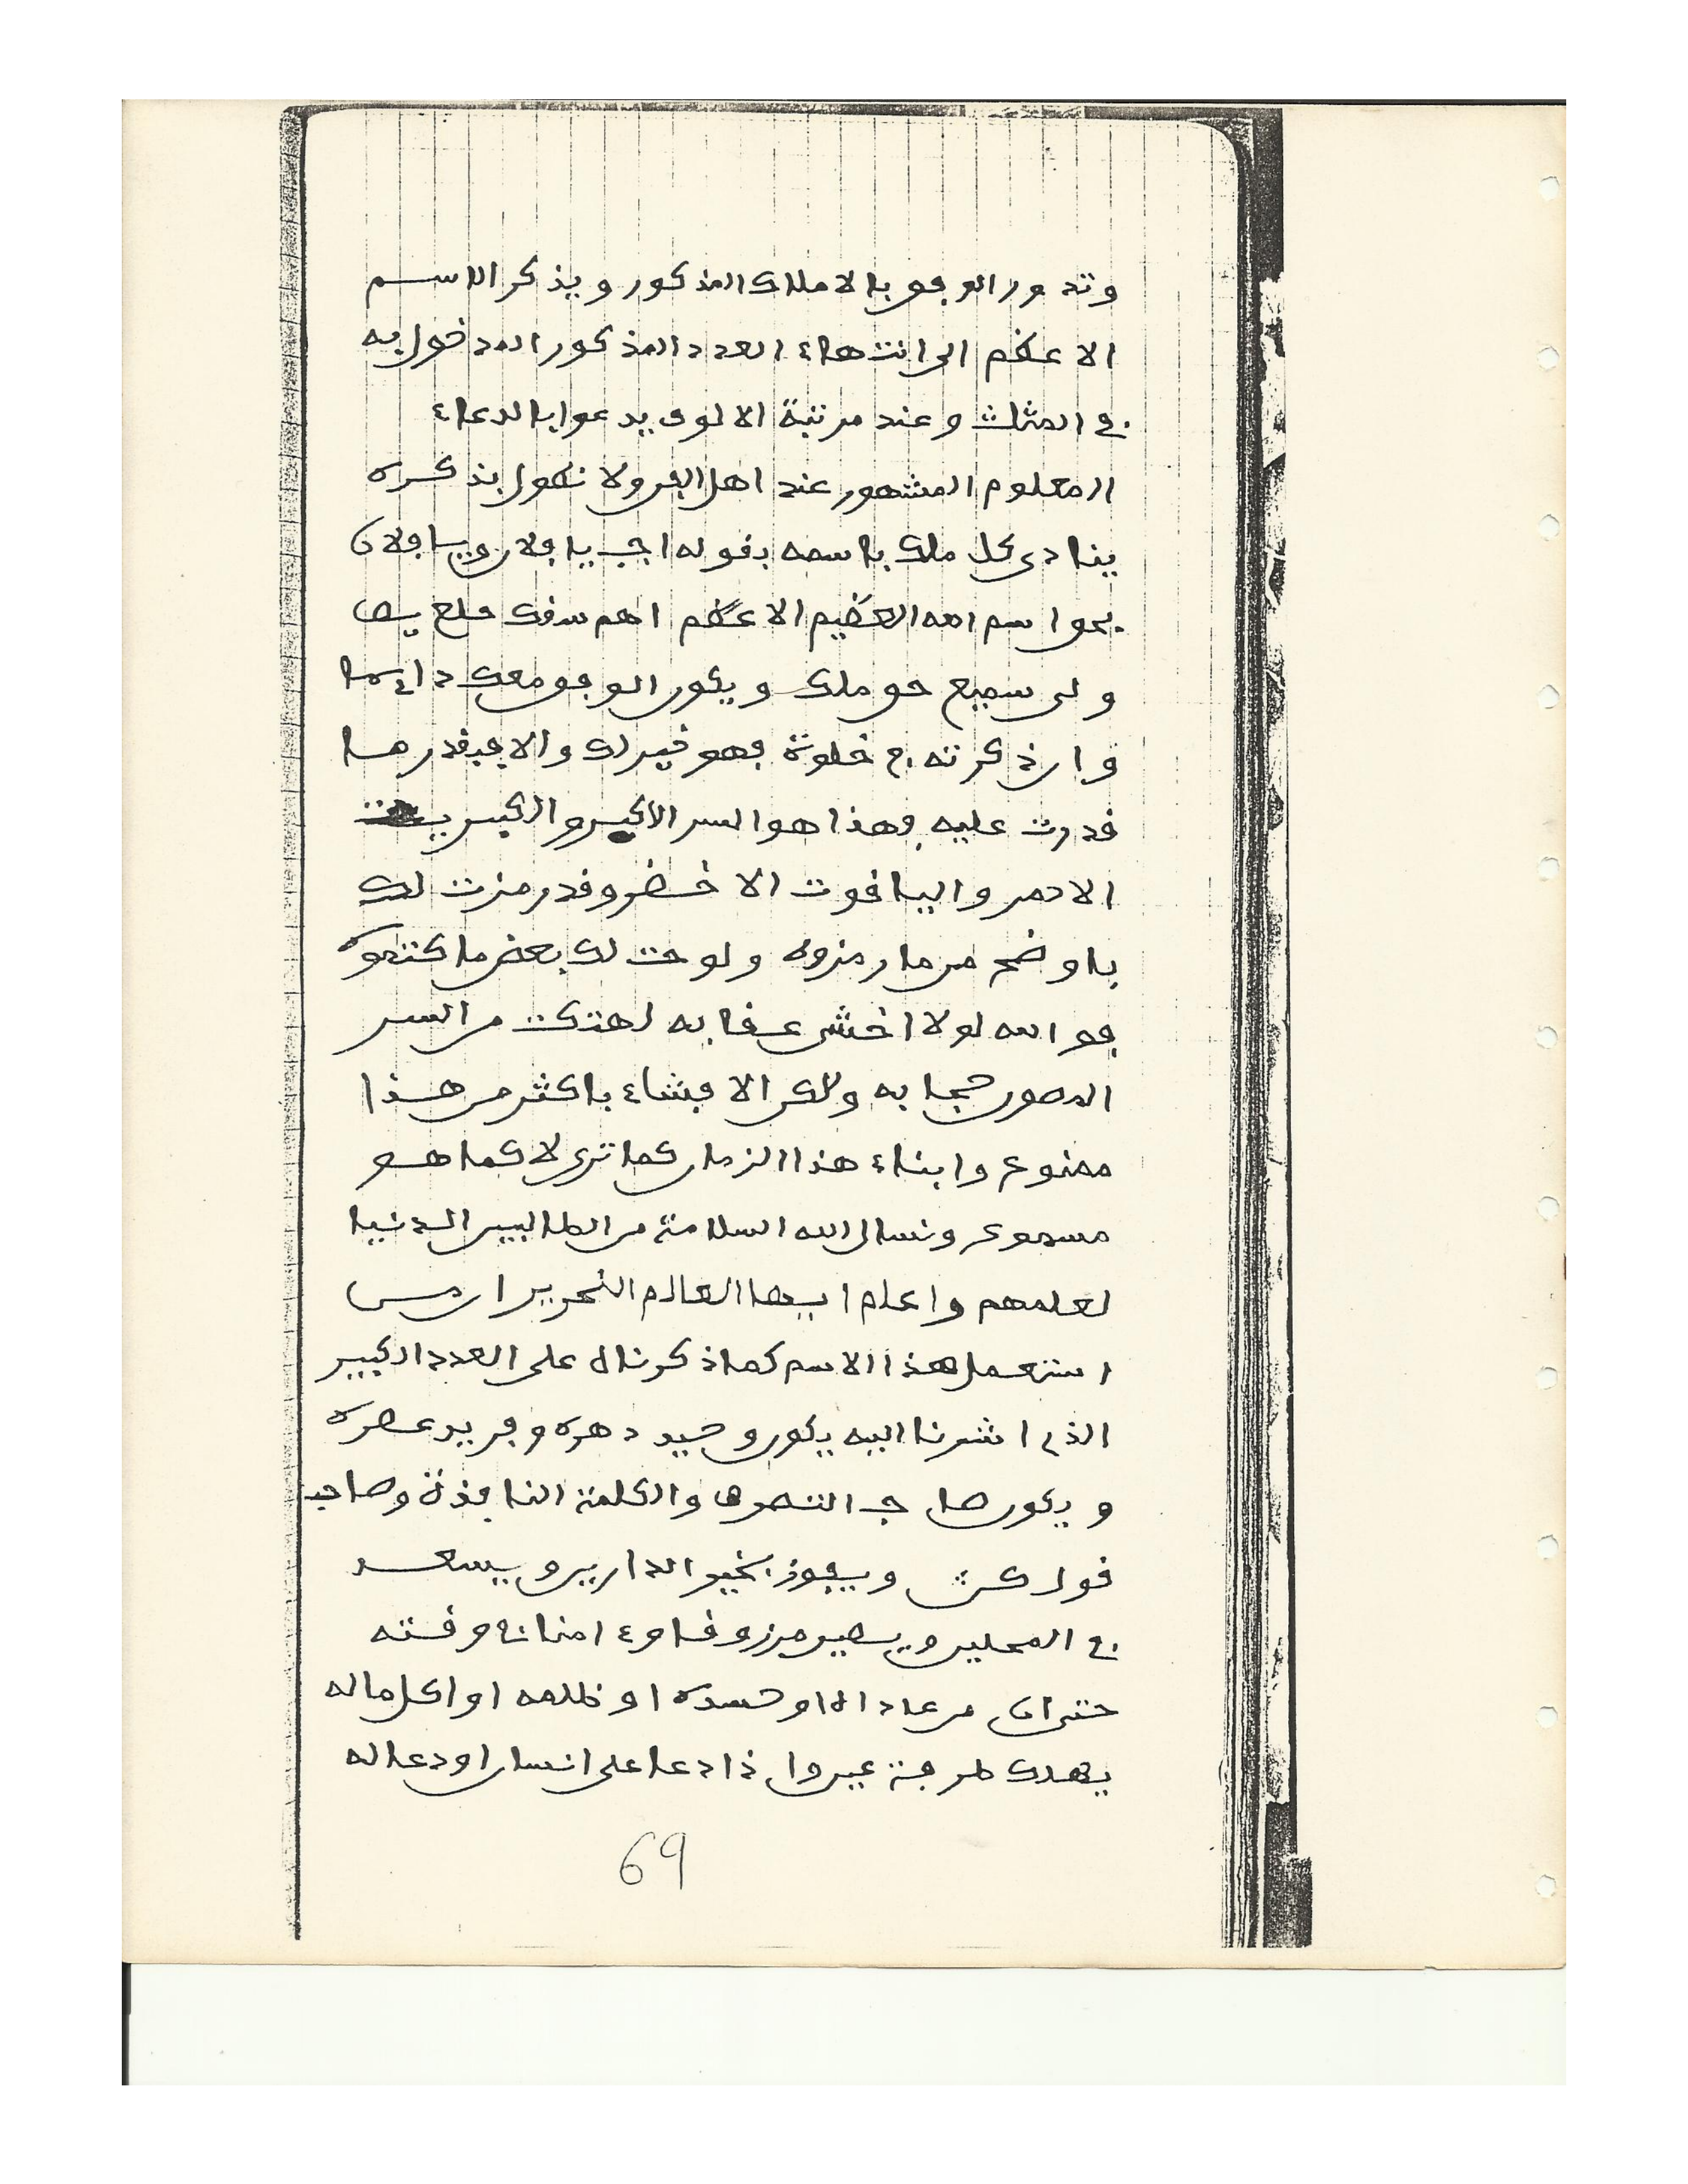 وتدور الوفق بالاملاك المذكور ويذكر الاسم
الاعظم الى انتهاء العدد المذكور المدخول به
في المثلث وعند مرتبة الالوف يدعوا بالدعاء
المعلوم المشهور عند اهل الفن ولا نطول بذكره
ينادى كل ملك باسمه بقوله اجب يا فلان ويا فلان
بحق اسم الله العظيم الاعظم اهم سقك
سميع ويكون الوفق معك دائما
وان ذكرته في خلوة فهو خير لك والا فبقدر ما
قدرت عليه وهذا هو السر الاكبر والكبريت
الاحمر والياقوت الاخضر وقد رمزت لك
باوضح من ما رمزوه ولوحت لك بعض ما كتموه
فوالله لولا اخشى عقابه لهتكت من السر
المصون حجابه ولكن الافشاء باكثر من هذا
ممنوع وابناء هذا الزمان كما ترى لا كما هو
مسموع ونسال الله السلامة من الطالبين الدنيا
لعلمهم واعلم ايها العالم النحرير ان من
استعمل هذا الاسم كما ذكرنا له على العدد الكبير
الذي اشرنا اليه يكون وحيد دهره وفريد عصره
ويكون صاحب التصرف والكلمة النافذة وصاحب
قول كن ويفوز بخير الدارين ويسعد
في ويصير مرزوقا امنا وقته
حتى ان من عاداه او حسده او ظلمه او اكل ماله
يهلك طرفة عين واذا دعا على انسان او دعا له
69